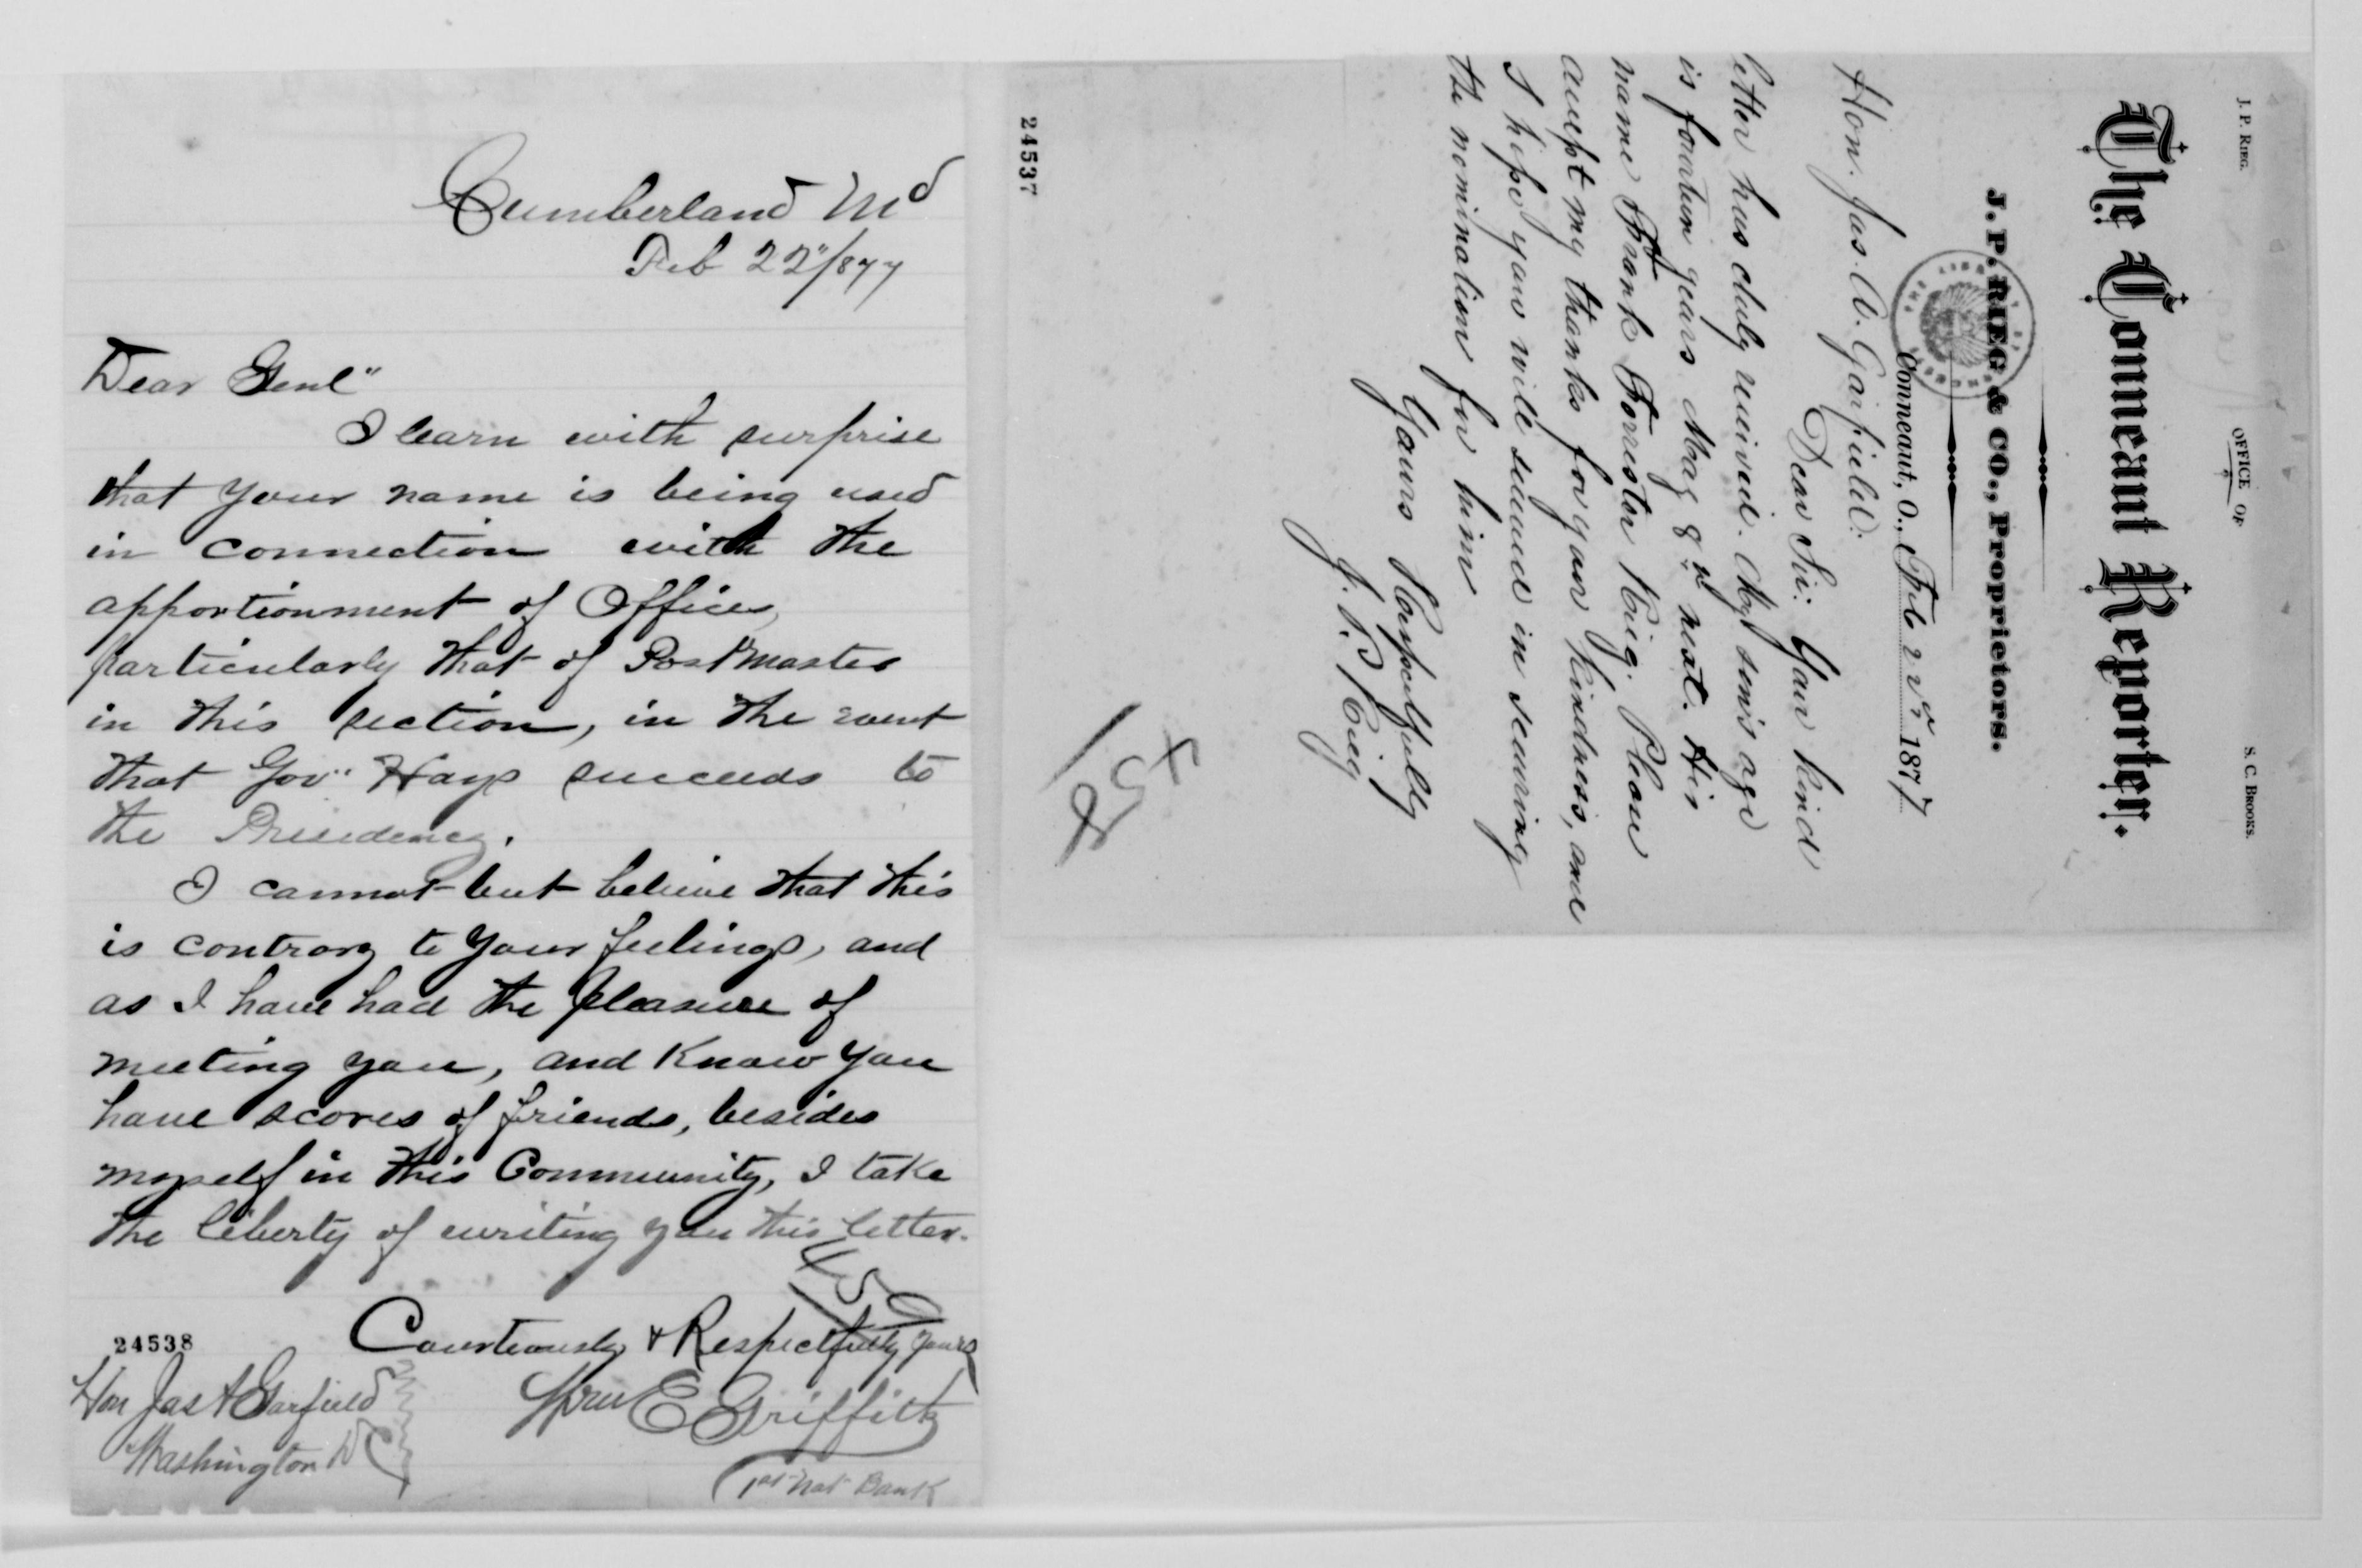 Cumberland Md
Feb 22"/877
Dear Genl"
I learn with surprise
that your name is being used
in connection with the
apportionment of Offices,
particularly that of Postmaster
in this section, in the event
that Gov" Hays succeeds to
the Presidency.
I cannot but believe that this
is contrary to your feelings, and
as I have had the pleasure of
meeting you, and Know you
have scores of friends, besides
myself in this Community, I take
the liberty of writing you this letter.
Courteously & Respectfully yours
E Griffith
1st Nat Bank
24538
Hon Jas A Garfield
Washington DC
J. P. RIEG.
OFFICE OF
S. C. BROOKS.
The Conneaut Reporter.
J. P. RIEG & CO., Proprietors.
Conneaut, O., Feb 22d 1877
Hon. Jas. A. Garfield:
Dear Sir: Your kind
letter has duly received. My son's age
is fourteen years May 8th next. His
name Frank Forrester Rieg. Please
accept my thanks for your kindness, and
I hope you will succeed in securing
the nomination for him
Yours Respectfully
J. P. Rieg
24537